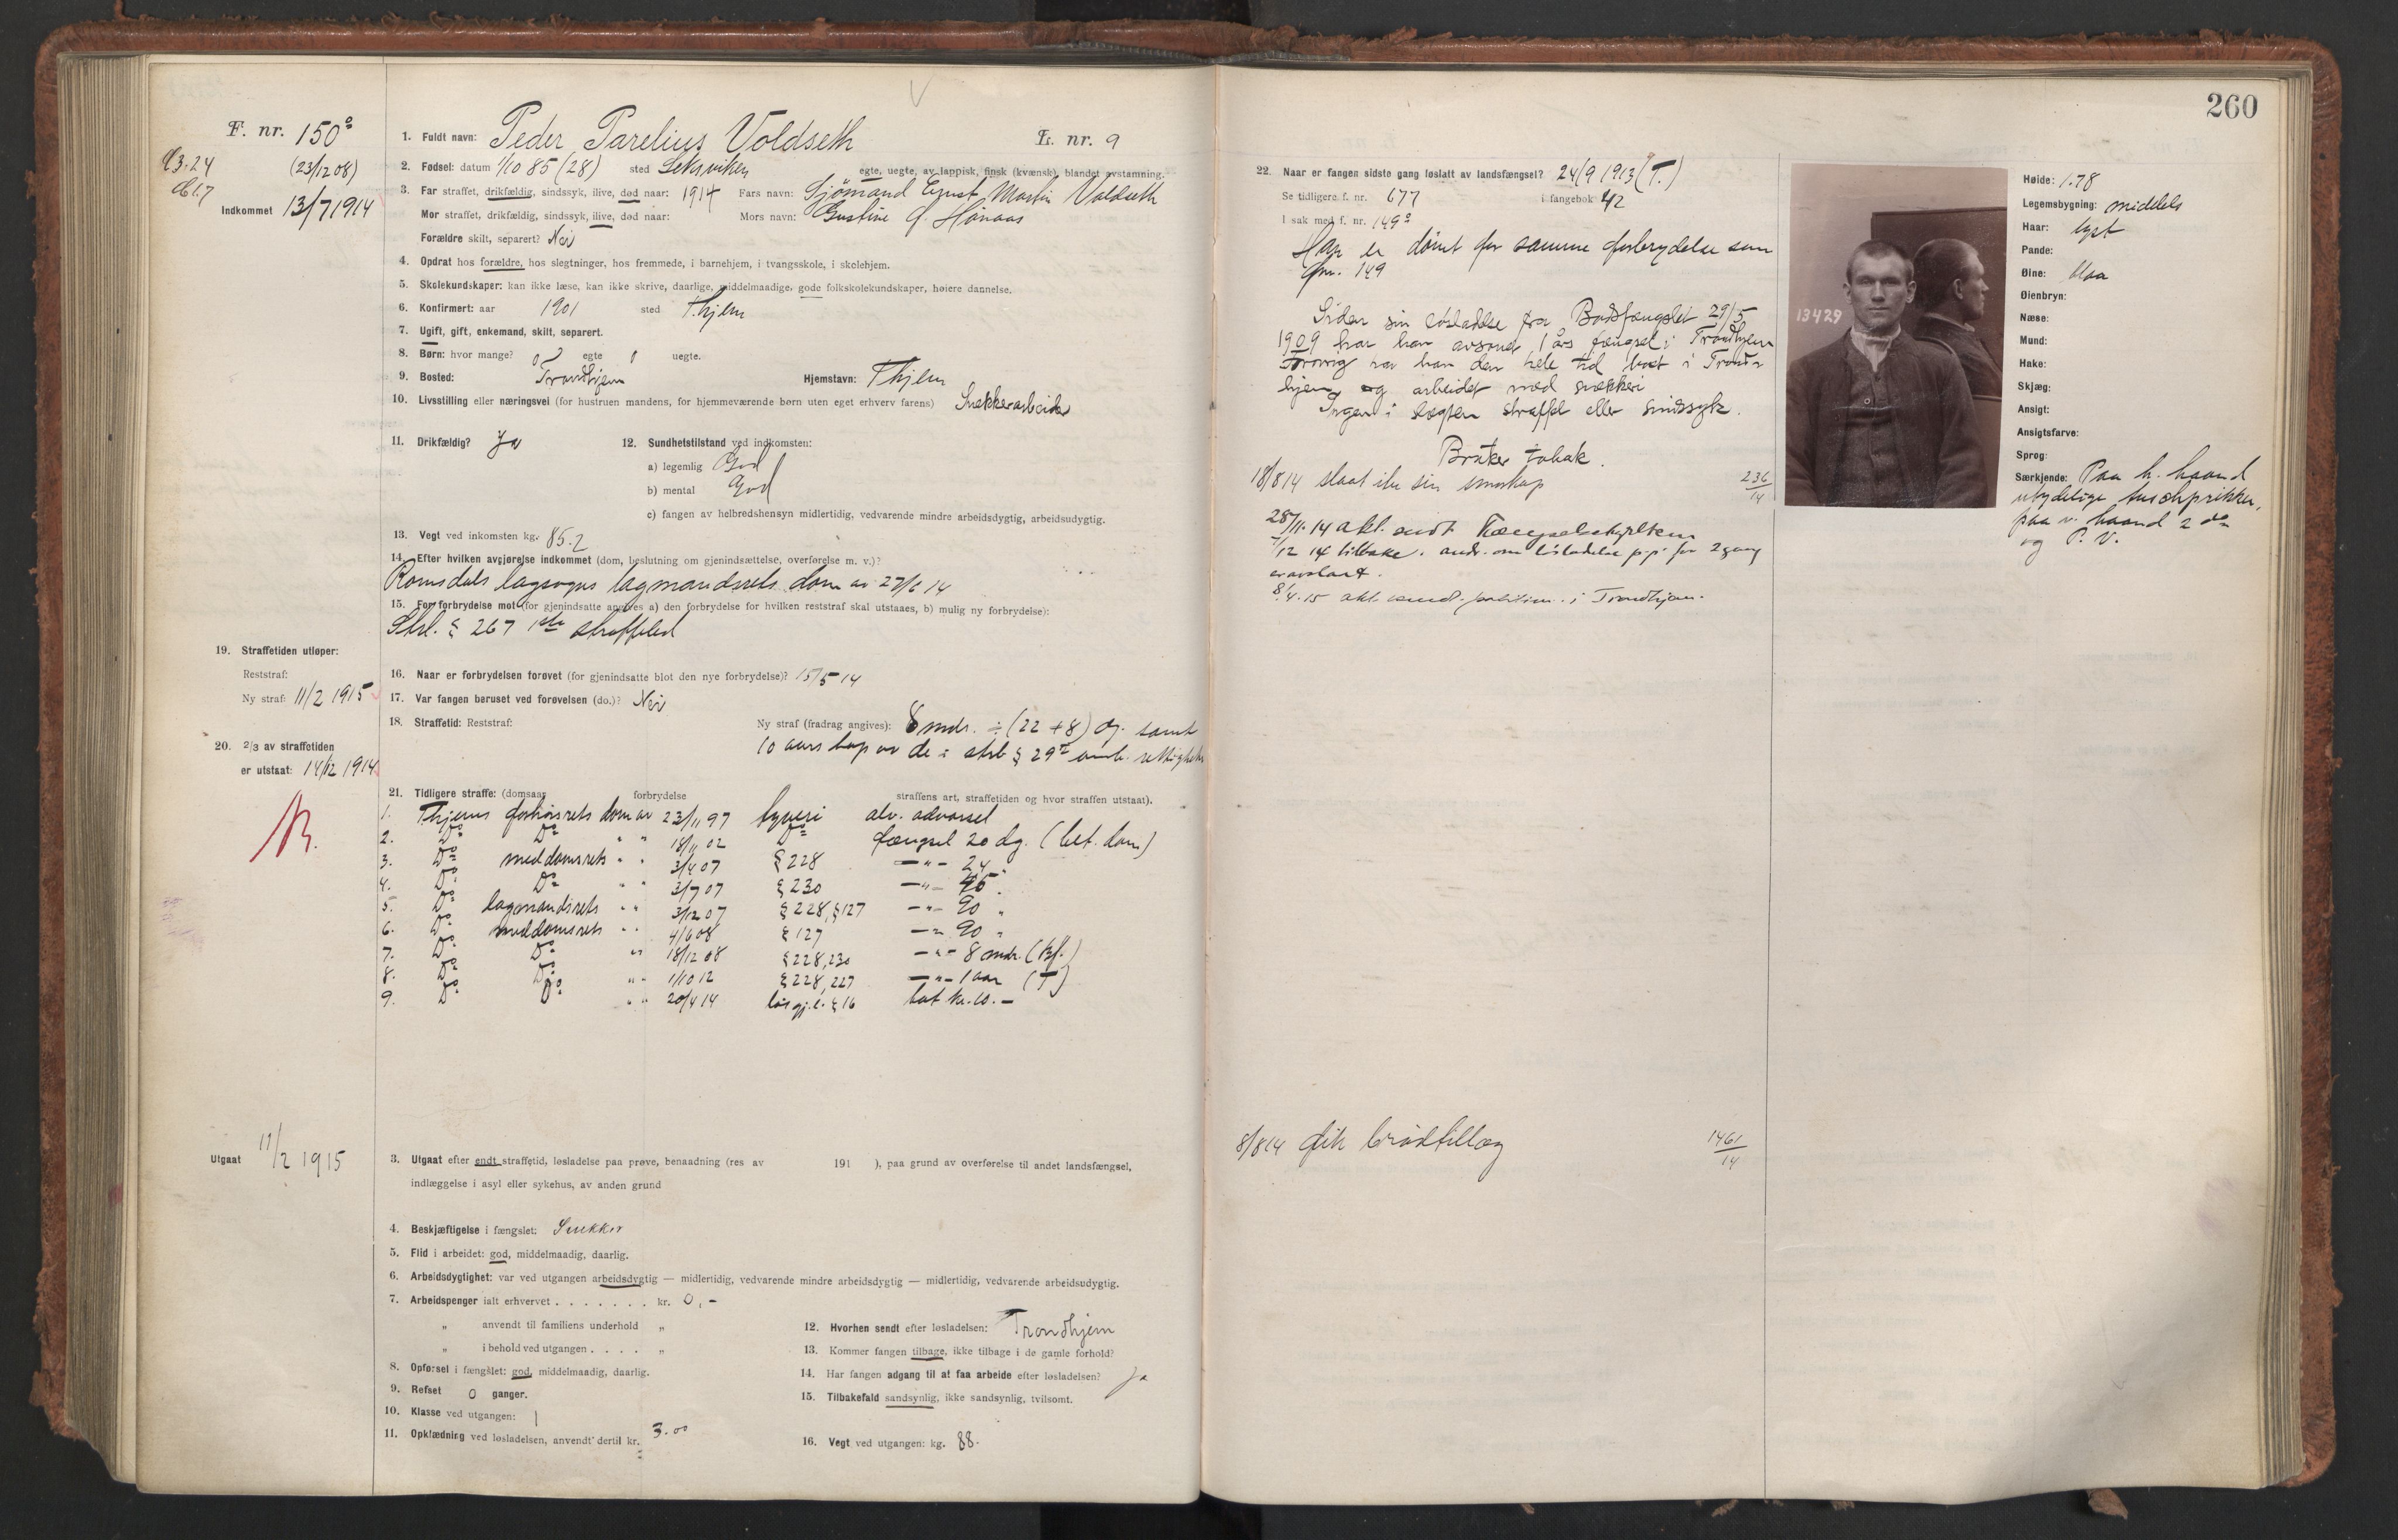 F. nr. 150²
(23/12 08)
Indkommet 13/7 1914
1. Fuldt navn: Peder Parelius Voldseth L. nr. 9
2. Fødsel: datum 1/10 85 (28) sted Leksviken egte, uegte, av lappisk, finsk (kvænsk), blandet avstamning.
3. Far straffet, drikfældig, sindssyk, ilive, død naar: 1914 Fars navn: Sjømand Ernst Martin Voldseth
Mor straffet, drikfældig, sindssyk, ilive, død naar: Mors navn: Gustine f. Hønaas
Forældre skilt, separert? Nei
4. Opdrat hos forældre, hos slegtninger, hos fremmede, i barnehjem, i tvangsskole, i skolehjem.
5. Skolekundskaper: kan ikke læse, kan ikke skrive, daarlige, middelmaadige, gode folkskolekundskaper, høiere dannelse.
6. Konfirmert: aar 1901 sted Thjem
7. Ugift, gift, enkemand, skilt, separert.
8. Børn: hvor mange? 0 egte 0 uegte.
9. Bosted: Trondhjem Hjemstavn: Thjem
10. Livsstilling eller næringsvei (for hustruen mandens, for hjemmeværende børn uten eget erhverv farens) Snekkerarbeider
11. Drikfældig? Ja 12. Sundhetstilstand ved indkomsten:
a) legemlig God
b) mental God
c) fangen av helbredshensyn midlertidig, vedvarende mindre arbeidsdygtig, arbeidsudygtig.
13. Vegt ved inkomsten kg. 85.2
14. Efter hvilken avgjørelse indkommet (dom, beslutning om gjenindsættelse, overførelse m. v.)?
Romsdals lagsogns lagmandsrets dom av 27/6 14
15. For forbrydelse mot (for gjenindsatte angives a) den forbrydelse for hvilken reststraf skal utstaaes, b) mulig ny forbrydelse):
Strl. § 267 1ste straffeled
19. Straffetiden utløper:
Reststraf:
Ny straf: 11/2 1915
16. Naar er forbrydelsen forøvet (for gjenindsatte blot den nye forbrydelse)? 15/5 14
17. Var fangen beruset ved forøvelsen (do.)? Nei
18. Straffetid: Reststraf: Ny straf (fradrag angives): 8 mdr. ÷ (22 + 8) dg. samt
10 aars tap av de i strl § 29² omh. rettigheter
20. 2/3 av straffetiden
er utstaat: 14/12 1914
21. Tidligere straffe: (domsaar forbrydelse straffens art, straffetiden og hvor straffen utstaat).
1. Thjems forhørsrets dom av 23/11 97 tyveri alv. advarsel
2. Do Do " " 18/11 02 Do fængsel 20 dg. (bet. dom)
3. Do meddomsrets " " 3/4 07 § 228 — " — 24 "
4. Do Do " " 3/7 07 § 230 — " — 45 "
5. Do lagmandsrets " " 3/12 07 § 228, § 127 — " — 90 "
6. Do meddomsrets " " 4/6 08 § 127 — " — 90 "
7. Do Do " 18/12 08 § 228, 230 — " — 8 mdr. (Bf.)
8. Do Do " " 1/10 12 § 228, 227 — " — 1 aar (T)
9. Do Do " " 20/4 14 løsgj.l. § 16 bot kr. 10.—
Utgaat 11/2 1915
3. Utgaat efter endt straffetid, løsladelse paa prøve, benaadning (res av 191 ), paa grund av overførelse til andet landsfængsel,
indlæggelse i asyl eller sykehus, av anden grund
4. Beskjæftigelse i fængslet: Snekker
5. Flid i arbeidet: god, middelmaadig, daarlig.
6. Arbeidsdygtighet: var ved utgangen arbeidsdygtig — midlertidig, vedvarende mindre arbeidsdygtig — midlertidig, vedvarende arbeidsudygtig.
7. Arbeidspenger ialt erhvervet . . . . . . . kr. 0,-
" anvendt til familiens underhold "
" i behold ved utgangen . . . . "
8. Opførsel i fængslet: god, middelmaadig, daarlig.
9. Refset 0 ganger.
10. Klasse ved utgangen: 1
11. Opklædning ved løsladelsen, anvendt dertil kr. 3.00
12. Hvorhen sendt efter løsladelsen: Trondhjem
13. Kommer fangen tilbage, ikke tilbage i de gamle forhold?
14. Har fangen adgang til at faa arbeide efter løsladelsen? Ja
15. Tilbakefald sandsynlig, ikke sandsynlig, tvilsomt.
16. Vegt ved utgangen: kg. 88.
260
22. Naar er fangen sidste gang løslatt av landsfængsel? 24/9 1913 (T.)
Se tidligere f. nr. 677 i fangebok 42
I sak med f. nr. 149²
Han er dømt for samme forbrydelse som
fnr. 149
Siden sin løsladelse fra Bodsfængslet 29/5
1909 har han avsonet 1 års fængsel i Trondhjem
Forøvrig har han den hele tid boet i Trond-
hjem og arbeidet med snekkeri
Ingen i slegten straffet eller sindssyk.
Bruker tobak.
18/8 14 slaat ihr sin 236/14
28/11. 14 akt. sendt Fængselsstyrelsen
7/12 14 tilbake. ands. om løsladelse p.p. for 2 gang
er avslaat.
8/4. 15 akt. sendt politim. i Trondhjem.
8/8 14 fik brødtillæg 1461/14
13429
Høide: 1.78
Legemsbygning: middels
Haar: lyst
Pande:
Øine: blaa
Øienbryn:
Næse:
Mund:
Hake:
Skjæg:
Ansigt:
Ansigtsfarve:
Sprog:
Særkjende: Paa h. haand
utydelige tuschprikker,
paa v. haand 2 do
og P. V.